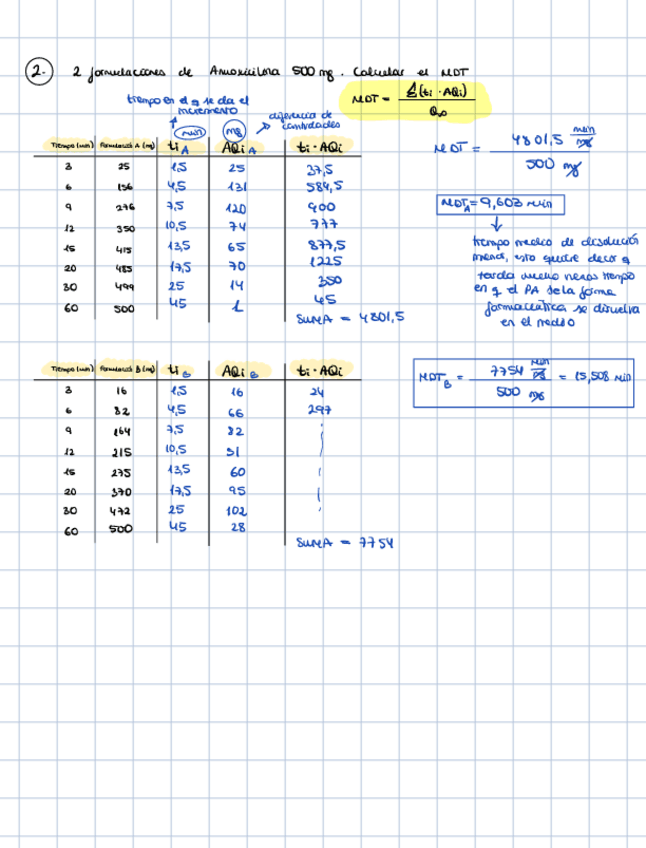 2. 2 formulaciones de Amoxicilina 500 mg. Calcular el MDT
MDT = Σ(ti · AQi) / Q∞
tiempo en el q se da el incremento
diferencia de cantidades
min mg
Tiempo (min) Formulació A (mg) ti A AQi A ti · AQi
3 25 1,5 25 37,5
6 156 4,5 131 589,5
9 276 7,5 120 900
12 350 10,5 74 777
15 415 13,5 65 877,5
20 485 17,5 70 1225
30 499 25 14 350
60 500 45 1 45
SUMA = 4801,5
MDT = 4801,5 min mg / 500 mg
MDT A = 9,603 min
tiempo medio de disolución
menor, esto quiere decir q
tarda mucho menos tiempo
en q el PA de la forma
farmacéutica se disuelva
en el medio
Tiempo (min) Formulació B (mg) ti B AQi B ti · AQi
3 16 1,5 16 24
6 82 4,5 66 297
9 164 7,5 82
12 215 10,5 51
15 275 13,5 60
20 370 17,5 95
30 472 25 102
60 500 45 28
SUMA = 7754
MDT B = 7754 min mg / 500 mg = 15,508 min